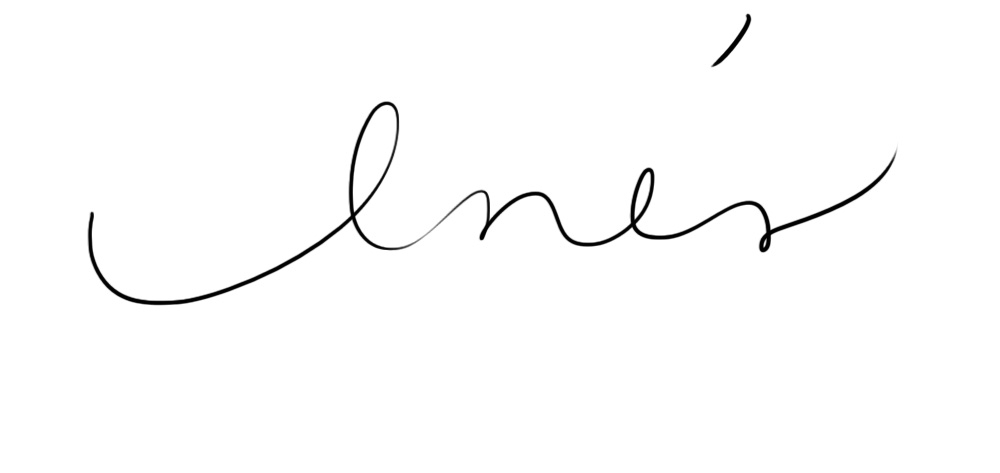 Inés